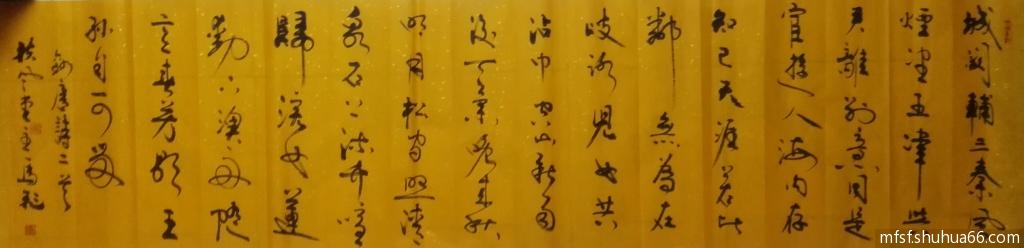 城闕輔三秦風
煙望五津與
君離别意同是
宦遊人海内存
知己天涯若比
鄰無爲在
歧路兒女共
沾巾空山新雨
後天氣晚來秋
明月松間照清
泉石上流竹喧
歸浣女蓮
動下漁舟隨
意春芳歇王
孫自可留
錄唐詩二首
扶風堂主馬
mfsf.shuhua66.com